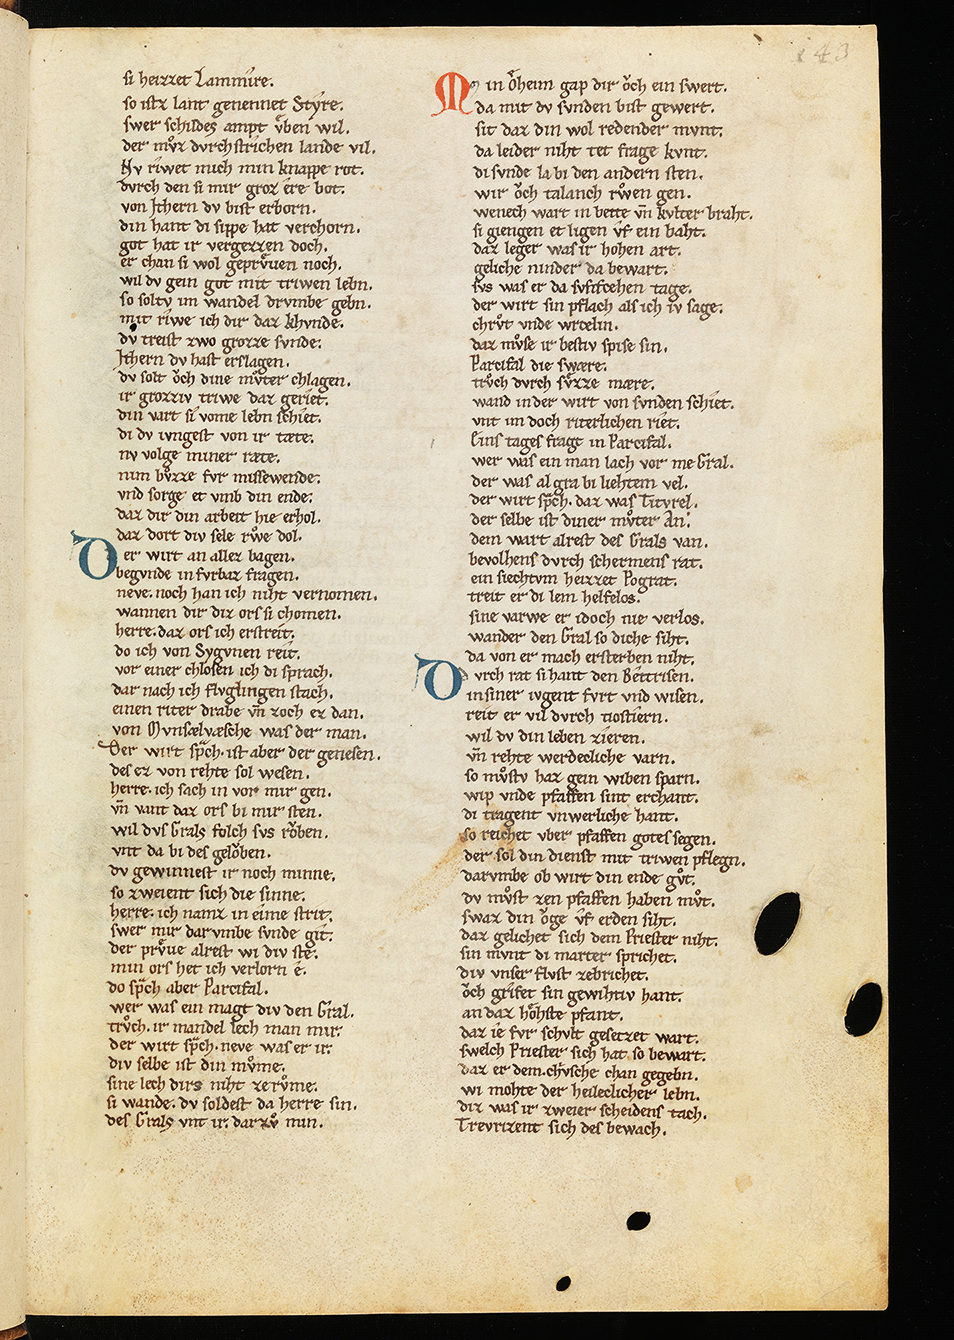 43
si heizzet Lammûre.
so istz lant genennet Styre.
swer schildes ampt vͦben wil.
der mvͦz dvrchstrichen lande vil.
Nv riwet mich min knappe rot.
dvrch den si mir groz ere bot.
von Jthern dv bist erborn.
din hant di sippe hat verchorn.
got hat ir vergezzen doch.
er chan si wol geprvͤuen noch.
wil dv gein got mit triwen lebn.
so soltv im wandel drvmbe gebn.
mit riwe ich dir daz khvnde.
dv treist zwo grozze svnde.
Jthern dv hast erslagen.
dv solt oͮch dine mvͦter chlagen.
ir grozziv triwe daz geriet.
din vart si vome lebn schiet.
di dv ivngest von ir tæte.
nv volge miner ræte.
nim bvͦzze fvr missewende.
vnd sorge et vmb din ende.
daz dir din arbeit hie erhol.
daz dort div sele rvͦwe dol.
Der wirt an allez bagen.
begvnde in fvrbaz fragen.
neve. noch han ich niht vernomen.
wannen dir diz ors si chomen.
herre. daz ors ich erstreit.
do ich von Sygvnen reit.
vor einer chlosen ich di sprach.
dar nach ich flvglingen stach.
einen riter drabe vn̄ zoch ez dan.
von Mvnsælvæsche was der man.
Der wirt spͣch. ist aber der genesen.
des ez von rehte sol wesen.
herre. ich sach in vor mir gen.
vn̄ vant daz ors bi mir sten.
wil dvs Grals folch svs roͮben.
vnt da bi des geloͮben.
dv gewinnest ir noch minne.
so zweient sich die sinne.
herre. ich namz in eime strit.
swer mir darvmbe svnde git.
der prvͤue alrest wi div ste.
min ors het ich verlorn e.
do spͣch aber Parcifal.
wer was ein magt div den Gral.
trvͦch. ir mandel lech man mir.
der wirt spͣch. neve was er ir.
div selbe ist din mvͦme.
sine lech dirs niht ze rvͦme.
si wande. dv soldest da herre sin.
des Grals vnt ir. darzvͦ min.
Min oͮheim gap dir oͮch ein swert.
da mit dv svnden bist gewert.
sit daz din wol redender mvnt.
da leider niht tet frage kvnt.
di svnde la bi den andern sten.
wir oͮch talanch rvͦwen gen.
wenech wart in bette vn̄ kvlter braht.
si giengen et ligen vf ein baht.
daz leger was ir hohen art.
geliche ninder da bewart.
svs was er da fvfzcehen tage.
der wirt sin pflach als ich iv sage.
chrvͦt vnde wrcelin.
daz mvͦse ir bestiv spise sin.
Parcifal die swære.
trvͦch dvrch svͦzze mære.
wand in der wirt von svnden schiet.
vnt im doch riterlichen riet.
Eins tages fragt in Parcifal.
wer was ein man lach vor me Gral.
der was al gra bi liehtem vel.
der wirt spͣch. daz was Tityrel.
der selbe ist diner mvͦter An.
dem wart alrest des Grals van.
bevolhens dvrch schermens rat.
ein siechtvm heizzet Pograt.
treit er di lem helfelos.
sine varwe er idoch nie verlos.
wander den Gral so diche siht.
da von er mach ersterben niht.
Dvrch rat si hant den Bettrisen.
in siner ivgent fvrt vnd wisen.
reit er vil dvrch tiostiern.
wil dv din leben zieren.
vn̄ rehte werdecliche varn.
so mvͦstv haz gein wiben sparn.
wip vnde pfaffen sint erchant.
di tragent vnwerliche hant.
so reichet vber pfaffen gotes segen.
der sol din dienst mit triwen pflegn.
darvmbe ob wirt din ende gvͦt.
dv mvͦst zen pfaffen haben mvͦt.
swaz din oͮge vf erden siht.
daz gelichet sich dem Priester niht.
sin mvnt di marter sprichet.
div vnser flvst zebrichet.
oͮch grifet sin gewihtiv hant.
an daz hoͤhste pfant.
daz ie fvr schvlt gesetzet wart.
swelch Priester sich hat so bewart.
daz er dem. chvsche chan gegebn.
wi mohte der heileclicher lebn.
diz was ir zweier scheidens tach.
Trevrizent sich des bewach.